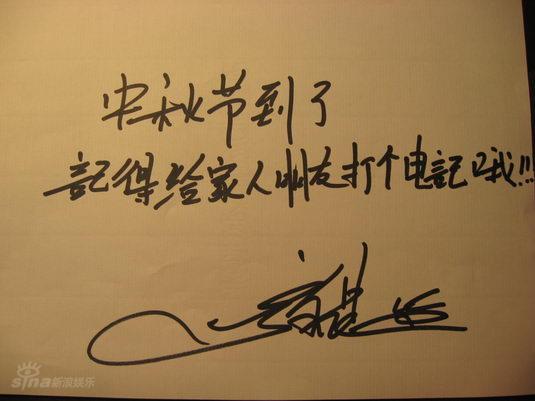 中秋节到了
記得给家人朋友打个电話哦!!!
sina新浪娱乐